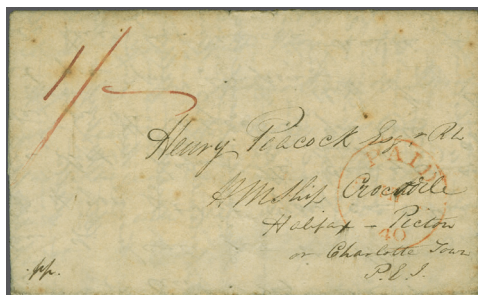 1/-
Henry Peacock Esqr R.N.
PAID
H M Ship Crocodile
Halifax - Picton
40
or Charlotte Town
P.E.I.
pp.